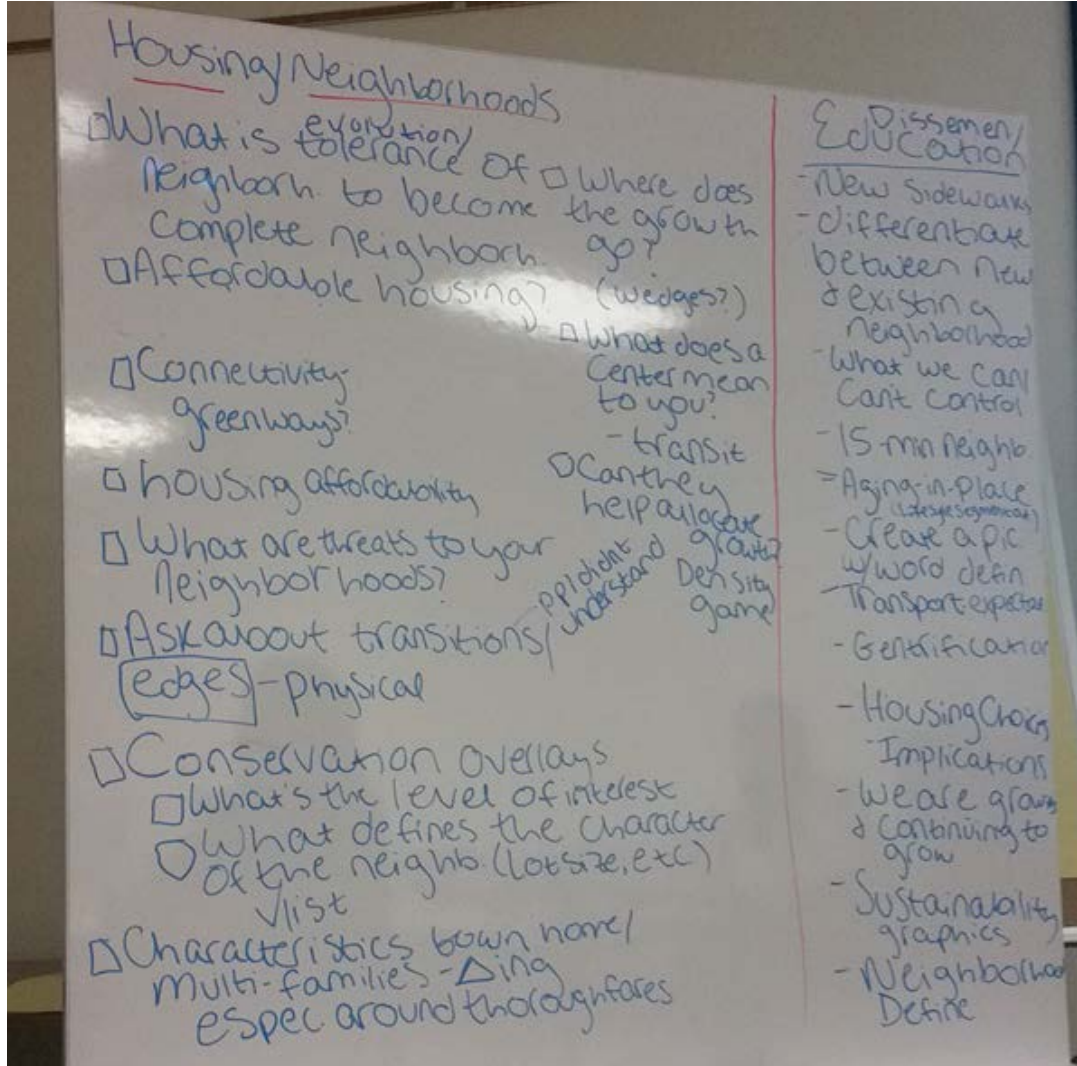 Housing/Neighborhoods
□What is evolution/
tolerance of
neighborh. to become
complete neighborh.
□Affordable housing?
□Connectivity-
greenways?
□housing affordability
□What are threats to your
neighborhoods?
□Ask about transitions/
edges-physical
ppldidnt
understand
□Conservation overlays
□What's the level of interest
□What defines the character
of the neighb. (lotsize, etc)
√list
□Characteristics town home/
multi-families-Δing
espec around thoroughfares
□Where does
the growth
go?
(wedges?)
□What does a
Center mean
to you?
-transit
□Can they
help allocate
growth?
Density
game
Dissemen/
Education
-New Sidewalks
-differentiate
between new
& existing
neighborhood
-What we can/
Can't control
-15-min neighb
-Aging-in-place
-Create a pic
w/word defin
-Transport
-Gentrification
-Housing Choice
-Implications
-We are growing
& continuing to
grow
-Sustainability
graphics
-Neighborhood
Define